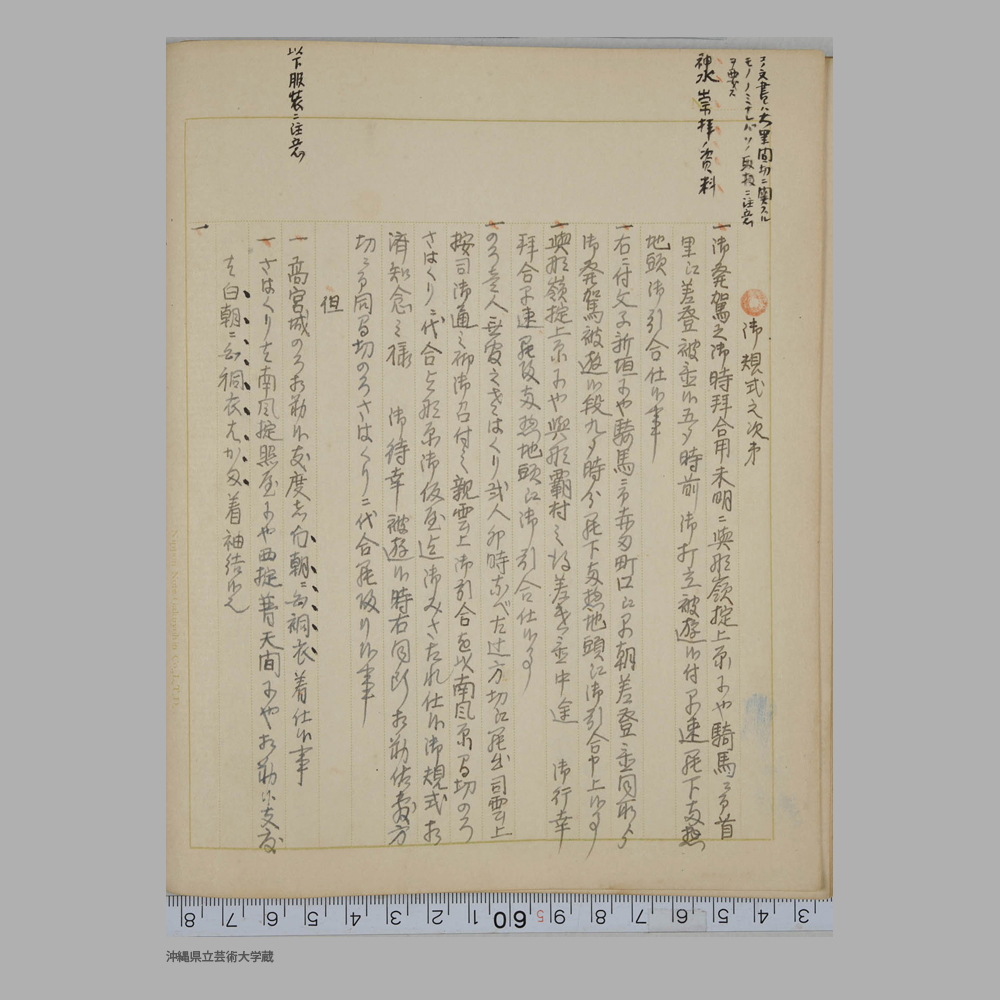 コノ文書ハ大里間切ニ関スル
モノノミナレバソノ取扱ニ注意
ヲ要ス
神水崇拝ノ資料
以下服装ニ注意
御規式之次第
一御発駕之御時拝合用未明ニ與那嶺掟上原子や騎馬ニ而首
里江差登被置候五ツ時前御打立被遊候付早速罷下両惣
地頭御引合仕候事
一右ニ付文子新垣子や騎馬ニ而赤田町口江早朝差登置同所ゟ
御発駕被遊候段九ツ時分罷下両惣地頭江御引合申上候事
一與那嶺掟上原子や與那覇村之得差遣置中途 御行幸
拝合早速罷帰両惣地頭江御引合仕候事
一のろ壱人 さはくり弐人卯時 辻方切江罷出司雲上
按司御通之御召付之親雲上御引合を以南風原間切のろ
さはくり二代合与那原御仮屋迄御みさたれ仕候御規式相
済知念之様 御待幸被遊候時右同断相勤佐敷方
切ニ而同間切のろさはくりニ代合罷帰リ候事
但
一高宮城のろ相勤候支度者白朝ニ而裯衣着仕候事
一さはくり者南風掟照屋子や西掟普天間子や相勤候支度
者白朝ニ而裯衣 着袖結候也
一
8 7 6 5 4 3 2 1 60 5 9 8 7 6 5 4 3
沖縄県立芸術大学蔵